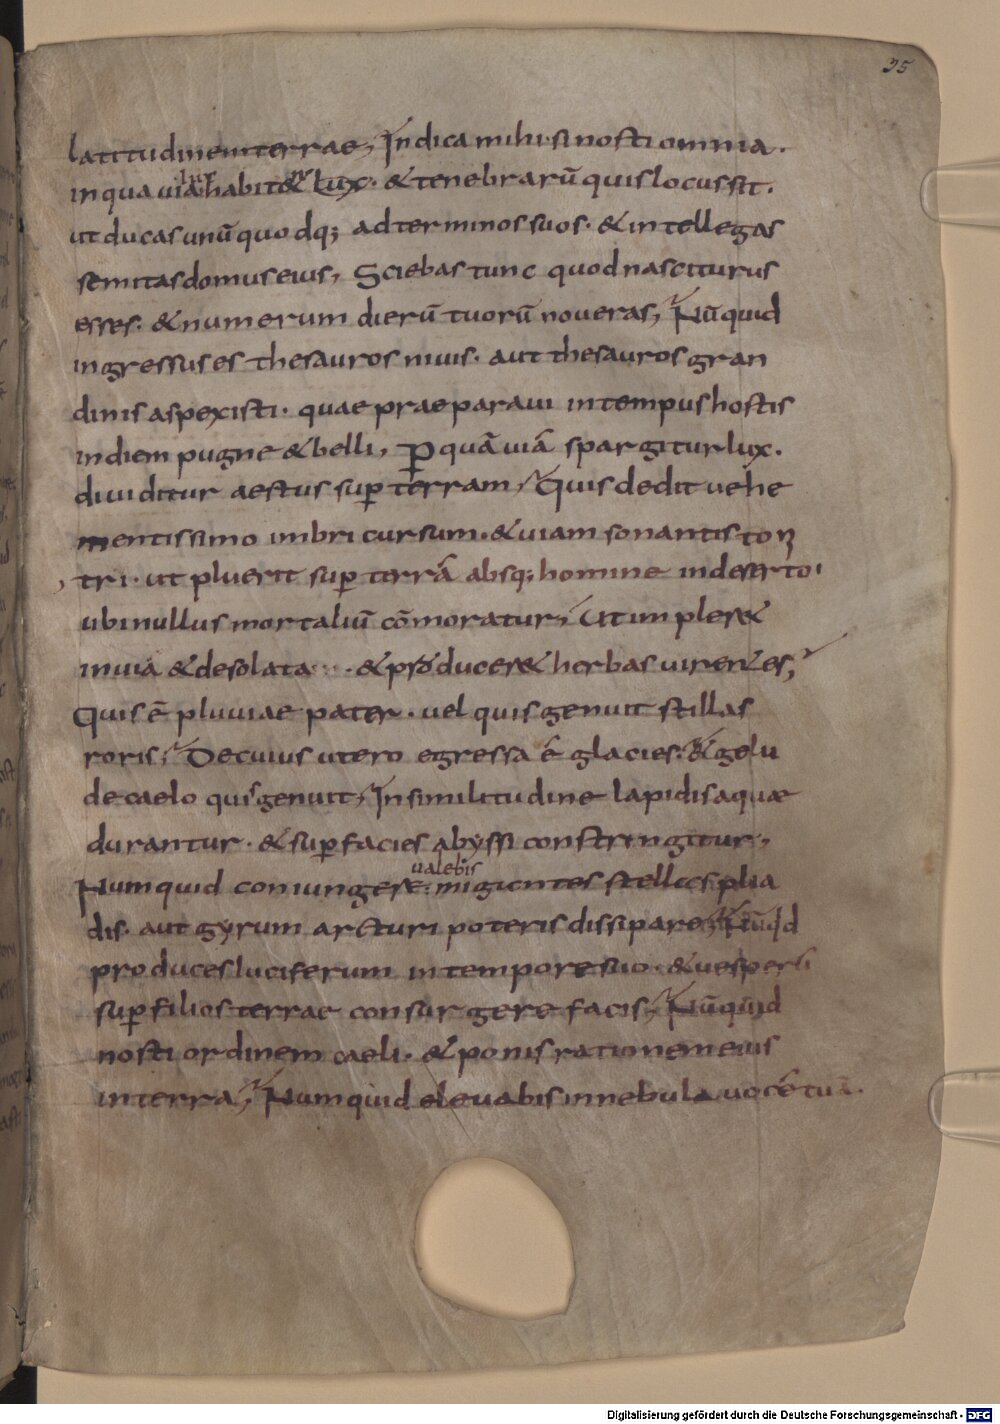 35
latitudinem terrae; Indica mihi si nosti omnia.
in qua via lux habit& lux. & tenebrarū quis locus sit.
ut ducas unū quodq; ad terminos suos. & intellegas
semitas domus eius, Sciebas tunc quod nasciturus
esses. & numerum dierū tuorū noveras, Nūquid
ingressus es thesauros nivis. aut thesauros gran
dinis aspexisti. quae praeparavi in tempus hostis
in diem pugne & belli, P quā viā spargitur lux.
dividitur aestus sup terram, Quis dedit vehe
mentissimo imbri cursum. & viam sonantis ton
tri. ut pluerit sup terrā absq; homine in deserto
ubi nullus mortaliū cōmoratur, Ut impler&
invia & desolata. & produceret herbas virentes,
Quis ē pluviae pater. vel quis genuit stillas
roris, De cuius utero egressa ē glacies. & gelu
de caelo quis genuit, In similitudine lapidis aquae
durantur. & sup facies abyssi constringitur,
valebis
Numquid coniungere migiantes stellas plia
dis. aut gyrum arcturi poteris dissipare, Nūqd
produces luciferum in tempore suo. & vesperū
sup filios terrae consurgere facis, Nūquid
nosti ordinem caeli. & ponis rationem eius
in terra, Numquid elevabis in nebula vocē tuā.
Digitalisierung gefördert durch die Deutsche Forschungsgemeinschaft - DFG